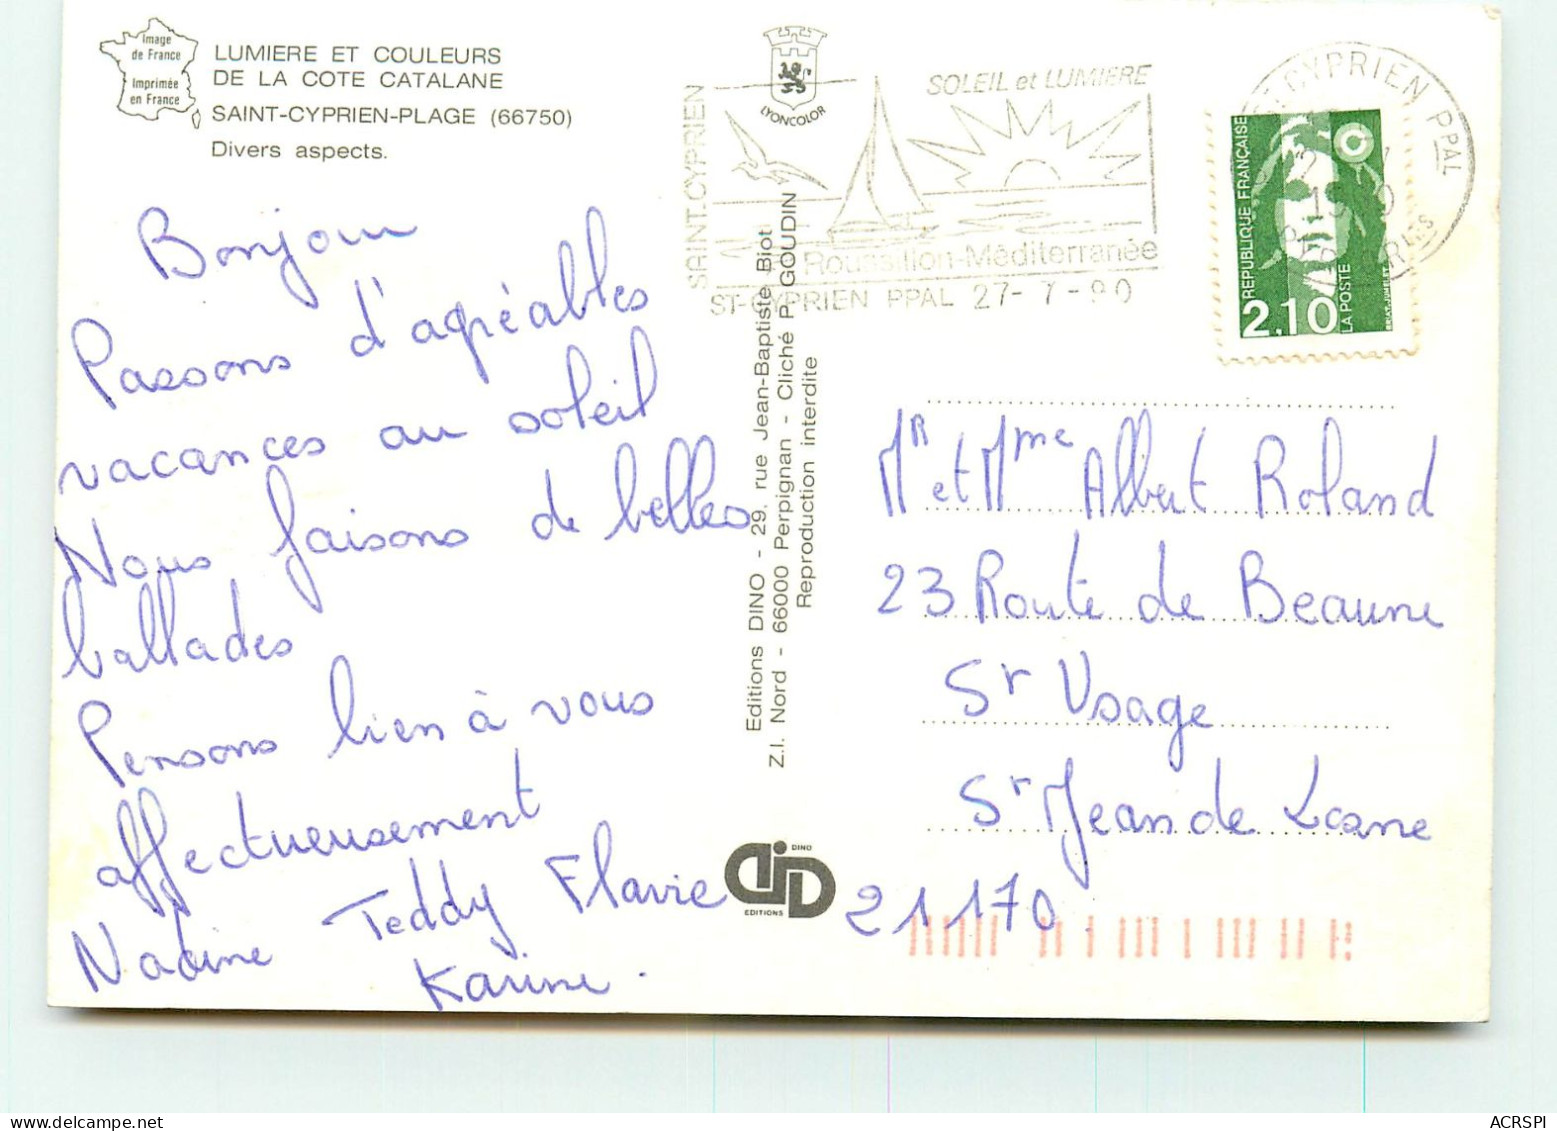 Image
de France
Imprimée
en France
LUMIERE ET COULEURS
DE LA COTE CATALANE
SAINT-CYPRIEN-PLAGE (66750)
Divers aspects.
Bonjour
Passons d'agréables
vacances au soleil
Nous faisons de belles
ballades
Pensons bien à vous
affectueusement
Nadine Teddy Flavie
Karine.
LYONCOLOR
SAINT.CYPRIEN
SOLEIL et LUMIERE
Roussillon-Méditerranée
ST-CYPRIEN PPAL 27-7-90
ST CYPRIEN PPAL
REPUBLIQUE FRANÇAISE
2,10
LA POSTE
Editions DINO - 29, rue Jean-Baptiste Biot
Z.I. Nord - 66000 Perpignan - Cliché P. GOUDIN
Reproduction interdite
DINO
EDITIONS
Mr et Mme Albert Roland
23 Route de Beaune
St Usage
St Jean de Losne
21170
ACRSPI